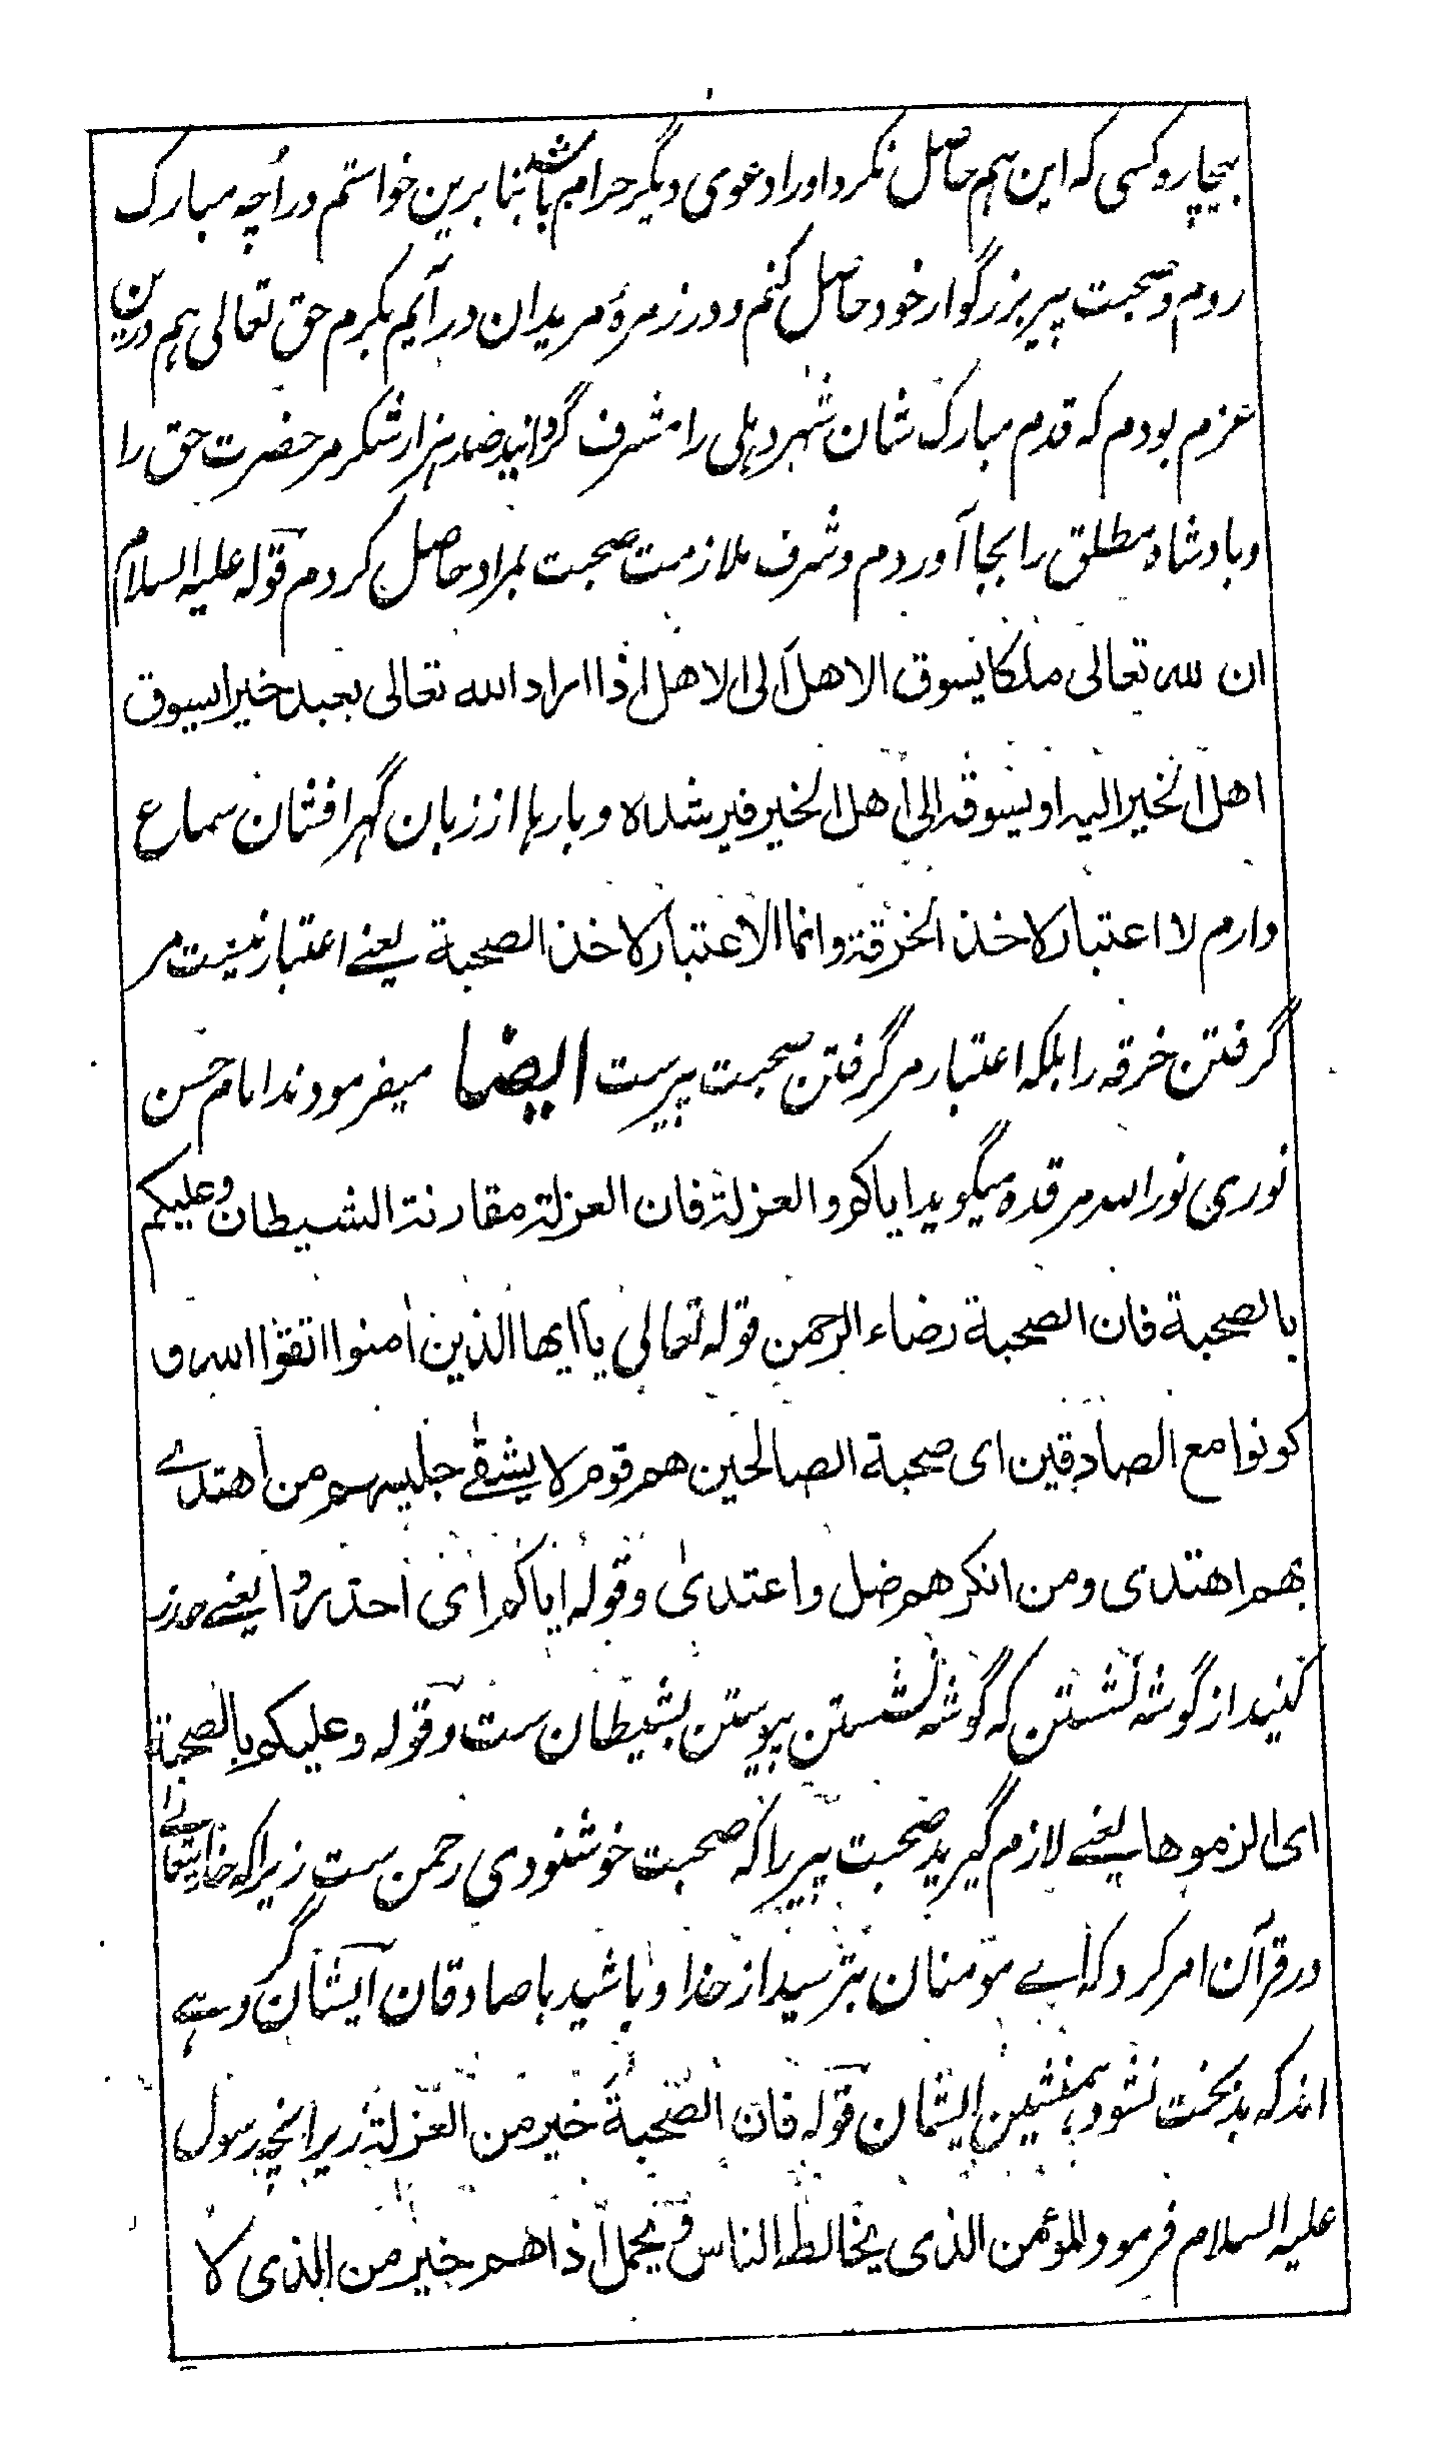 بیچاره کسی که این هم حاصل نکرد او را دعوی دیگر حرام باشد بنا برین خواستم در اُچه مبارک
روم و صحبت پیر بزرگوار خود حاصل کنم و در زمرهٔ مریدان در آیم بکرم حق تعالی هم درین
عزم بودم که قدم مبارک شان شهر دهلی را مشرف گردانید صد هزار شکر مر حضرت حق را
و بادشاه مطلق را بجا آوردم و شرف ملازمت صحبت بمراد حاصل کردم قوله علیه السلام
ان لله تعالی ملکا یسوق الاهل الی الاهل اذا اراد الله تعالی بعبد خیرا یسوق
اهل الخیر الیه او یسوقه الی اهل الخیر فیرشده و بارها از زبان گهر افشان سماع
دارم لا اعتبار لاخذ الخرقة وانما الاعتبار لاخذ الصحبة یعنے اعتبار نیست مر
گرفتن خرقه را بلکه اعتبار مر گرفتن صحبت پیرست ایضا میفرمودند امام حسن
نوری نور الله مرقده میگوید ایاکم والعزلة فان العزلة مقارنة الشیطان وعلیکم
بالصحبة فان الصحبة رضاء الرحمن قوله تعالی یا ایها الذین اٰمنوا اتقوا الله و
کونوا مع الصادقین ای صحبة الصالحین هم قوم لا یشقٰے جلیسهم من اهتدے
بهم اهتدی ومن انکرهم ضل واعتدیٰ وقوله ایاکم ای احذروا یعنے حذر
کنید از گوشه نشستن که گوشه نشستن پیوستن بشیطان ست و قوله وعلیکم بالصحبة
ای الزموها یعنے لازم گیرید صحبت پیر را که صحبت خوشنودی رحمن ست زیرا که خدایتعالے
در قرآن امر کرد که اے مومنان بترسید از خدا و باشید با صادقان ایشان گروهے
اند که بدبخت نشود همنشین ایشان قوله فان الصّحبةَ خیر من العزلة زیرا نچه رسول
علیه السلام فرمود المؤمن الذی یخالط الناس ویحمل اذاهم خیر من الذی لا